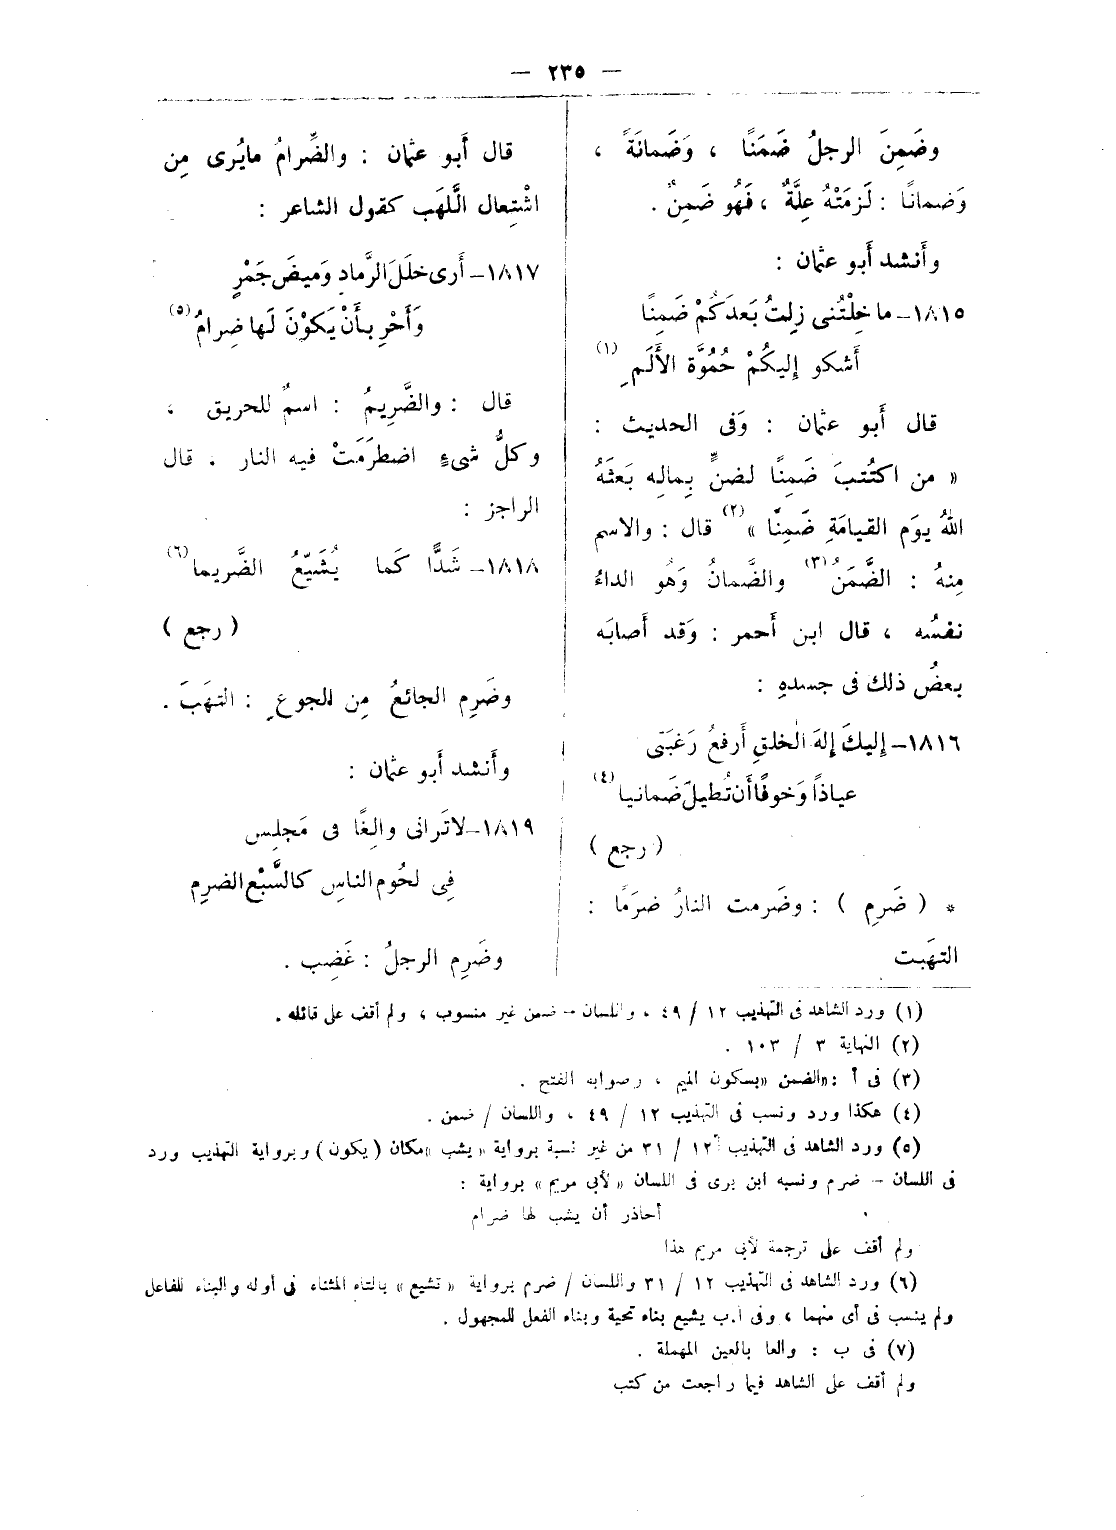 — ٢٣٥ —
وضَمِنَ الرجلُ ضَمَنًا ، وَضَمانَةً ،
وَضمانًا : لَزمَتْهُ عِلَّةٌ ، فَهُو ضَمِنٌ .
وأنشد أبو عثمان :
١٨١٥– ما خِلْتُنى زِلتُ بَعدَكُمْ ضَمِنًا
أشكو إليكُمْ حُمُوَّة الأَلَمِ (١)
قال أَبو عثمان : وَفى الحديث :
« من اكتُتبَ ضَمِنًا لضنٍّ بِمالِه بَعثَهُ
اللهُ يومَ القيامَةِ ضَمِنًا » (٢) قال : والاسم
مِنهُ : الضَّمَنُ (٣) والضَّمانُ وَهُو الداءُ
نفسُه ، قال ابن أَحمر : وَقد أَصابَه
بعضُ ذلك فى جسدهِ :
١٨١٦– إليكَ إلهَ الخلقِ أَرفعُ رَغبَتى
عياذاً وَخوفًا أَن تُطيلَ ضَمانيا (٤)
( رجع )
* ( ضَرِم ) : وضَرمت النارُ ضرَمًا :
التهَبت
قال أَبو عثمان : والضِّرامُ مايُرى مِن
اشْتِعال الَّلهَب كقول الشاعر :
١٨١٧– أَرى خلَلَ الرَّمادِ وَميضَ جَمْرٍ
وَأَحْرِ بأَنْ يَكوْنَ لَها ضِرامُ (٥)
قال : والضَّرِيمُ : اسمٌ للحريق ،
وكلُّ شىءٍ اضطرَمَتْ فيه النار . قال
الراجز :
١٨١٨– شَدًّا كَما يُشَيّعُ الضَّريما (٦)
( رجع )
وضَرِم الجائعُ مِن الجوعِ : التهَبَ .
وأنشد أبو عثمان :
١٨١٩– لاتَرانى والِغًا فى مَجلِس
فِى لحُوم الناسِ كالسَّبْعِ الضرِم
وضَرِم الرجلُ : غَضِب .
(١) ورد الشاهد فى التهذيب ١٢ / ٤٩ ، واللسان – ضمن غير منسوب ، ولم أقف على قائله .
(٢) النهاية ٣ / ١٠٣ .
(٣) فى أ : «الضمن «بسكون الميم ، وصوابه الفتح .
(٤) هكذا ورد ونسب فى التهذيب ١٢ / ٤٩ ، واللسان / ضمن .
(٥) ورد الشاهد فى التهذيب ١٢ / ٣١ من غير نسبة برواية «يشب »مكان (يكون) وبرواية التهذيب ورد
فى اللسان – ضرم ونسبه ابن برى فى اللسان «لأبي مريم» برواية :
أحاذر أن يشب لها ضرام
ولم أقف على ترجمة لأبي مريم هذا
(٦) ورد الشاهد فى التهذيب ١٢ / ٣١ واللسان / ضرم برواية «تشيع» بالتاء المثناء فى أوله والبناء للفاعل
ولم ينسب فى أى منهما ، وفى أ.ب يشيع بناء تحية وبناء الفعل للمجهول .
(٧) فى ب : والعا بالعين المهملة .
ولم أقف على الشاهد فيما راجعت من كتب